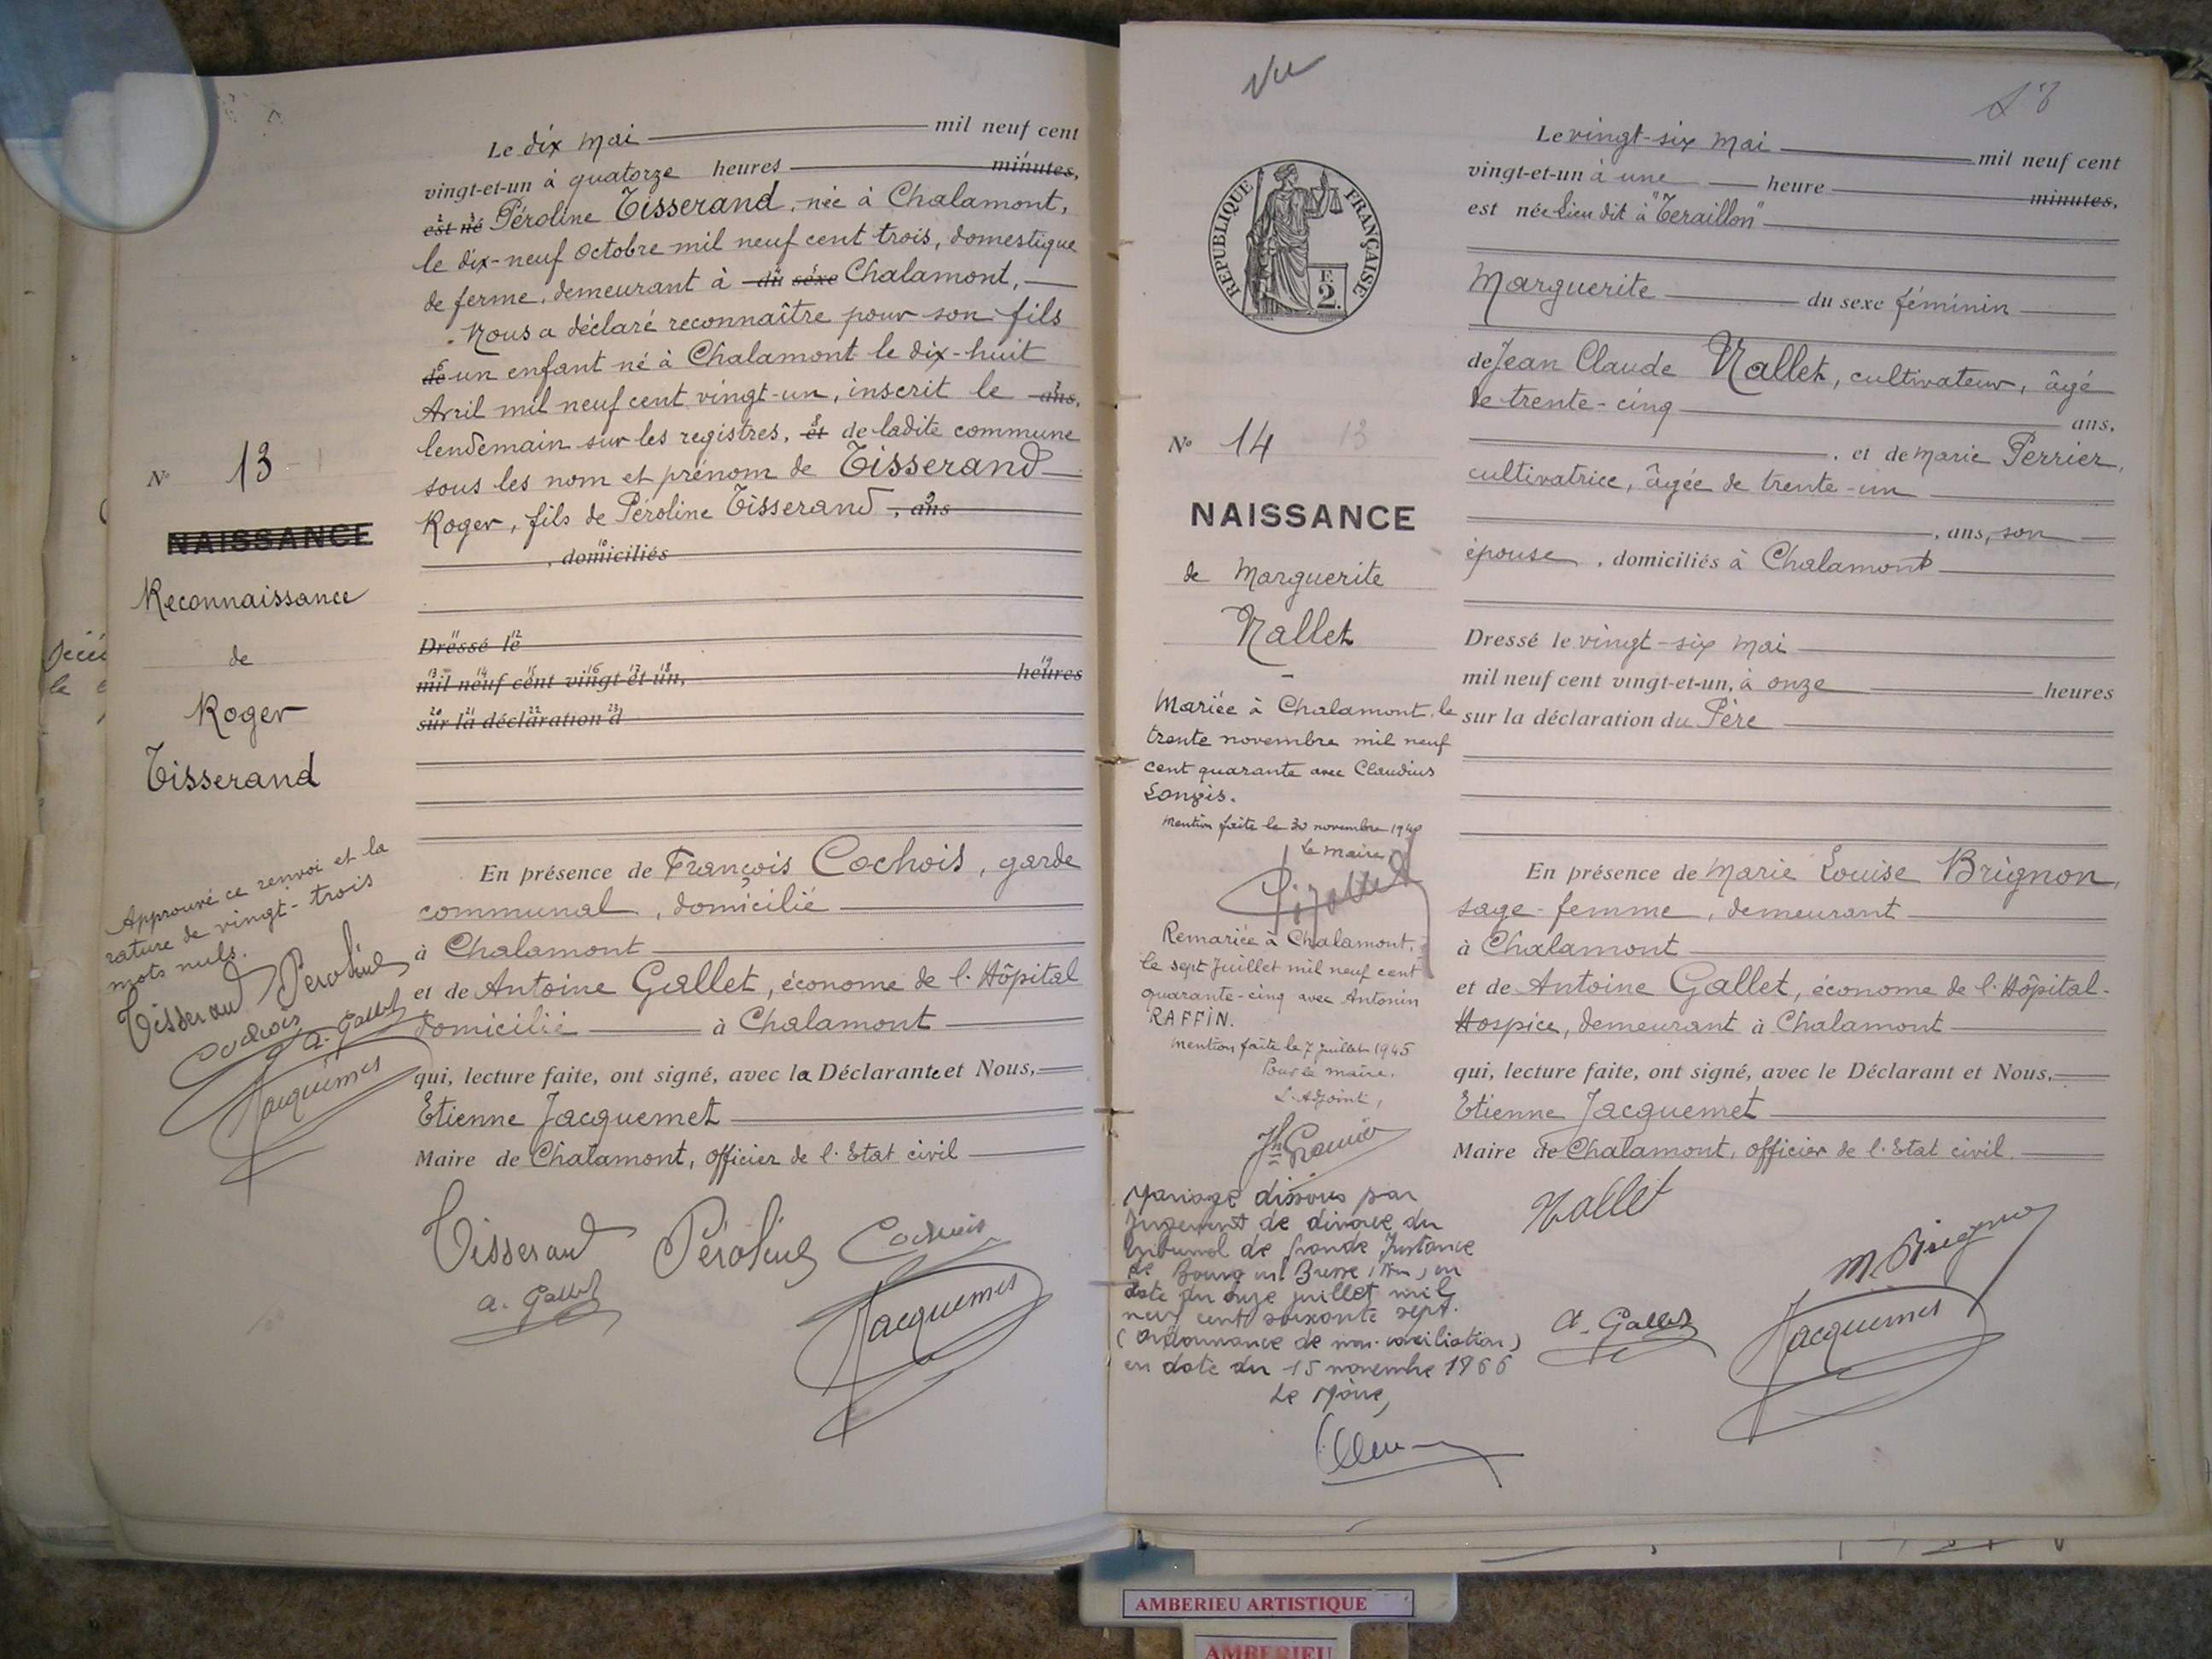 Le dix mai mil neuf cent
vingt-et-un à quatorze heures minutes,
est né Péroline Tisserand, née à Chalamont,
le dix-neuf Octobre mil neuf cent trois, domestique
de ferme, demeurant à du sexe Chalamont,
Nous a déclaré reconnaître pour son fils
de un enfant né à Chalamont le dix-huit
Avril mil neuf cent vingt-un, inscrit le ans,
lendemain sur les registres, et de ladite commune
sous les nom et prénom de Tisserand
Roger, fils de Péroline Tisserand, ans
, domiciliés
Dressé le
mil neuf cent vingt-et-un, heures
sur la déclaration d
En présence de François Cochois, garde
communal, domicilié
à Chalamont
et de Antoine Gallet, économe de l'Hôpital
domicilié à Chalamont
qui, lecture faite, ont signé, avec la Déclarante et Nous,
Etienne Jacquemet
Maire de Chalamont, officier de l'Etat civil
Tisserand Péroline Cochois
A. Gallet
Jacquemet
N° 13
NAISSANCE
Reconnaissance
de
Roger
Tisserand
Approuvé ce renvoi et la
rature de vingt-trois
mots nuls.
Tisserand Péroline
Cochois A. Gallet
Jacquemet
Vu
18
RÉPUBLIQUE FRANÇAISE
F.
2.
N° 14 13
NAISSANCE
de Marguerite
Nallet
Mariée à Chalamont, le
trente novembre mil neuf
cent quarante avec Claudius
Mention faite le 30 novembre 1940
Le maire,
Remariée à Chalamont,
le sept Juillet mil neuf cent
quarante-cinq avec Antonin
RAFFIN.
Mention faite le 7 juillet 1945
Pour le maire,
L'Adjoint,
Mariage dissous par
Jugement de divorce du
Tribunal de Grande Instance
de Bourg en Bresse (Ain) en
date du onze juillet mil
neuf cent soixante sept.
(Ordonnance de non-conciliation)
en date du 15 novembre 1966
Le Maire,
Le vingt-six mai mil neuf cent
vingt-et-un à une heure minutes,
est née Lieu dit à "Teraillon"
Marguerite du sexe féminin
de Jean Claude Nallet, cultivateur, âgé
de trente-cinq ans,
, et de Marie Perrier,
cultivatrice, âgée de trente-un
, ans, son
épouse, domiciliés à Chalamont
Dressé le vingt-six mai
mil neuf cent vingt-et-un, à onze heures
sur la déclaration du Père
En présence de Marie Louise Brignon,
sage-femme, demeurant
à Chalamont
et de Antoine Gallet, économe de l'Hôpital-
Hospice, demeurant à Chalamont
qui, lecture faite, ont signé, avec le Déclarant et Nous,
Etienne Jacquemet
Maire de Chalamont, officier de l'Etat civil.
Nallet
M. Brignon
A. Gallet
Jacquemet
AMBERIEU ARTISTIQUE
AMBERIEU